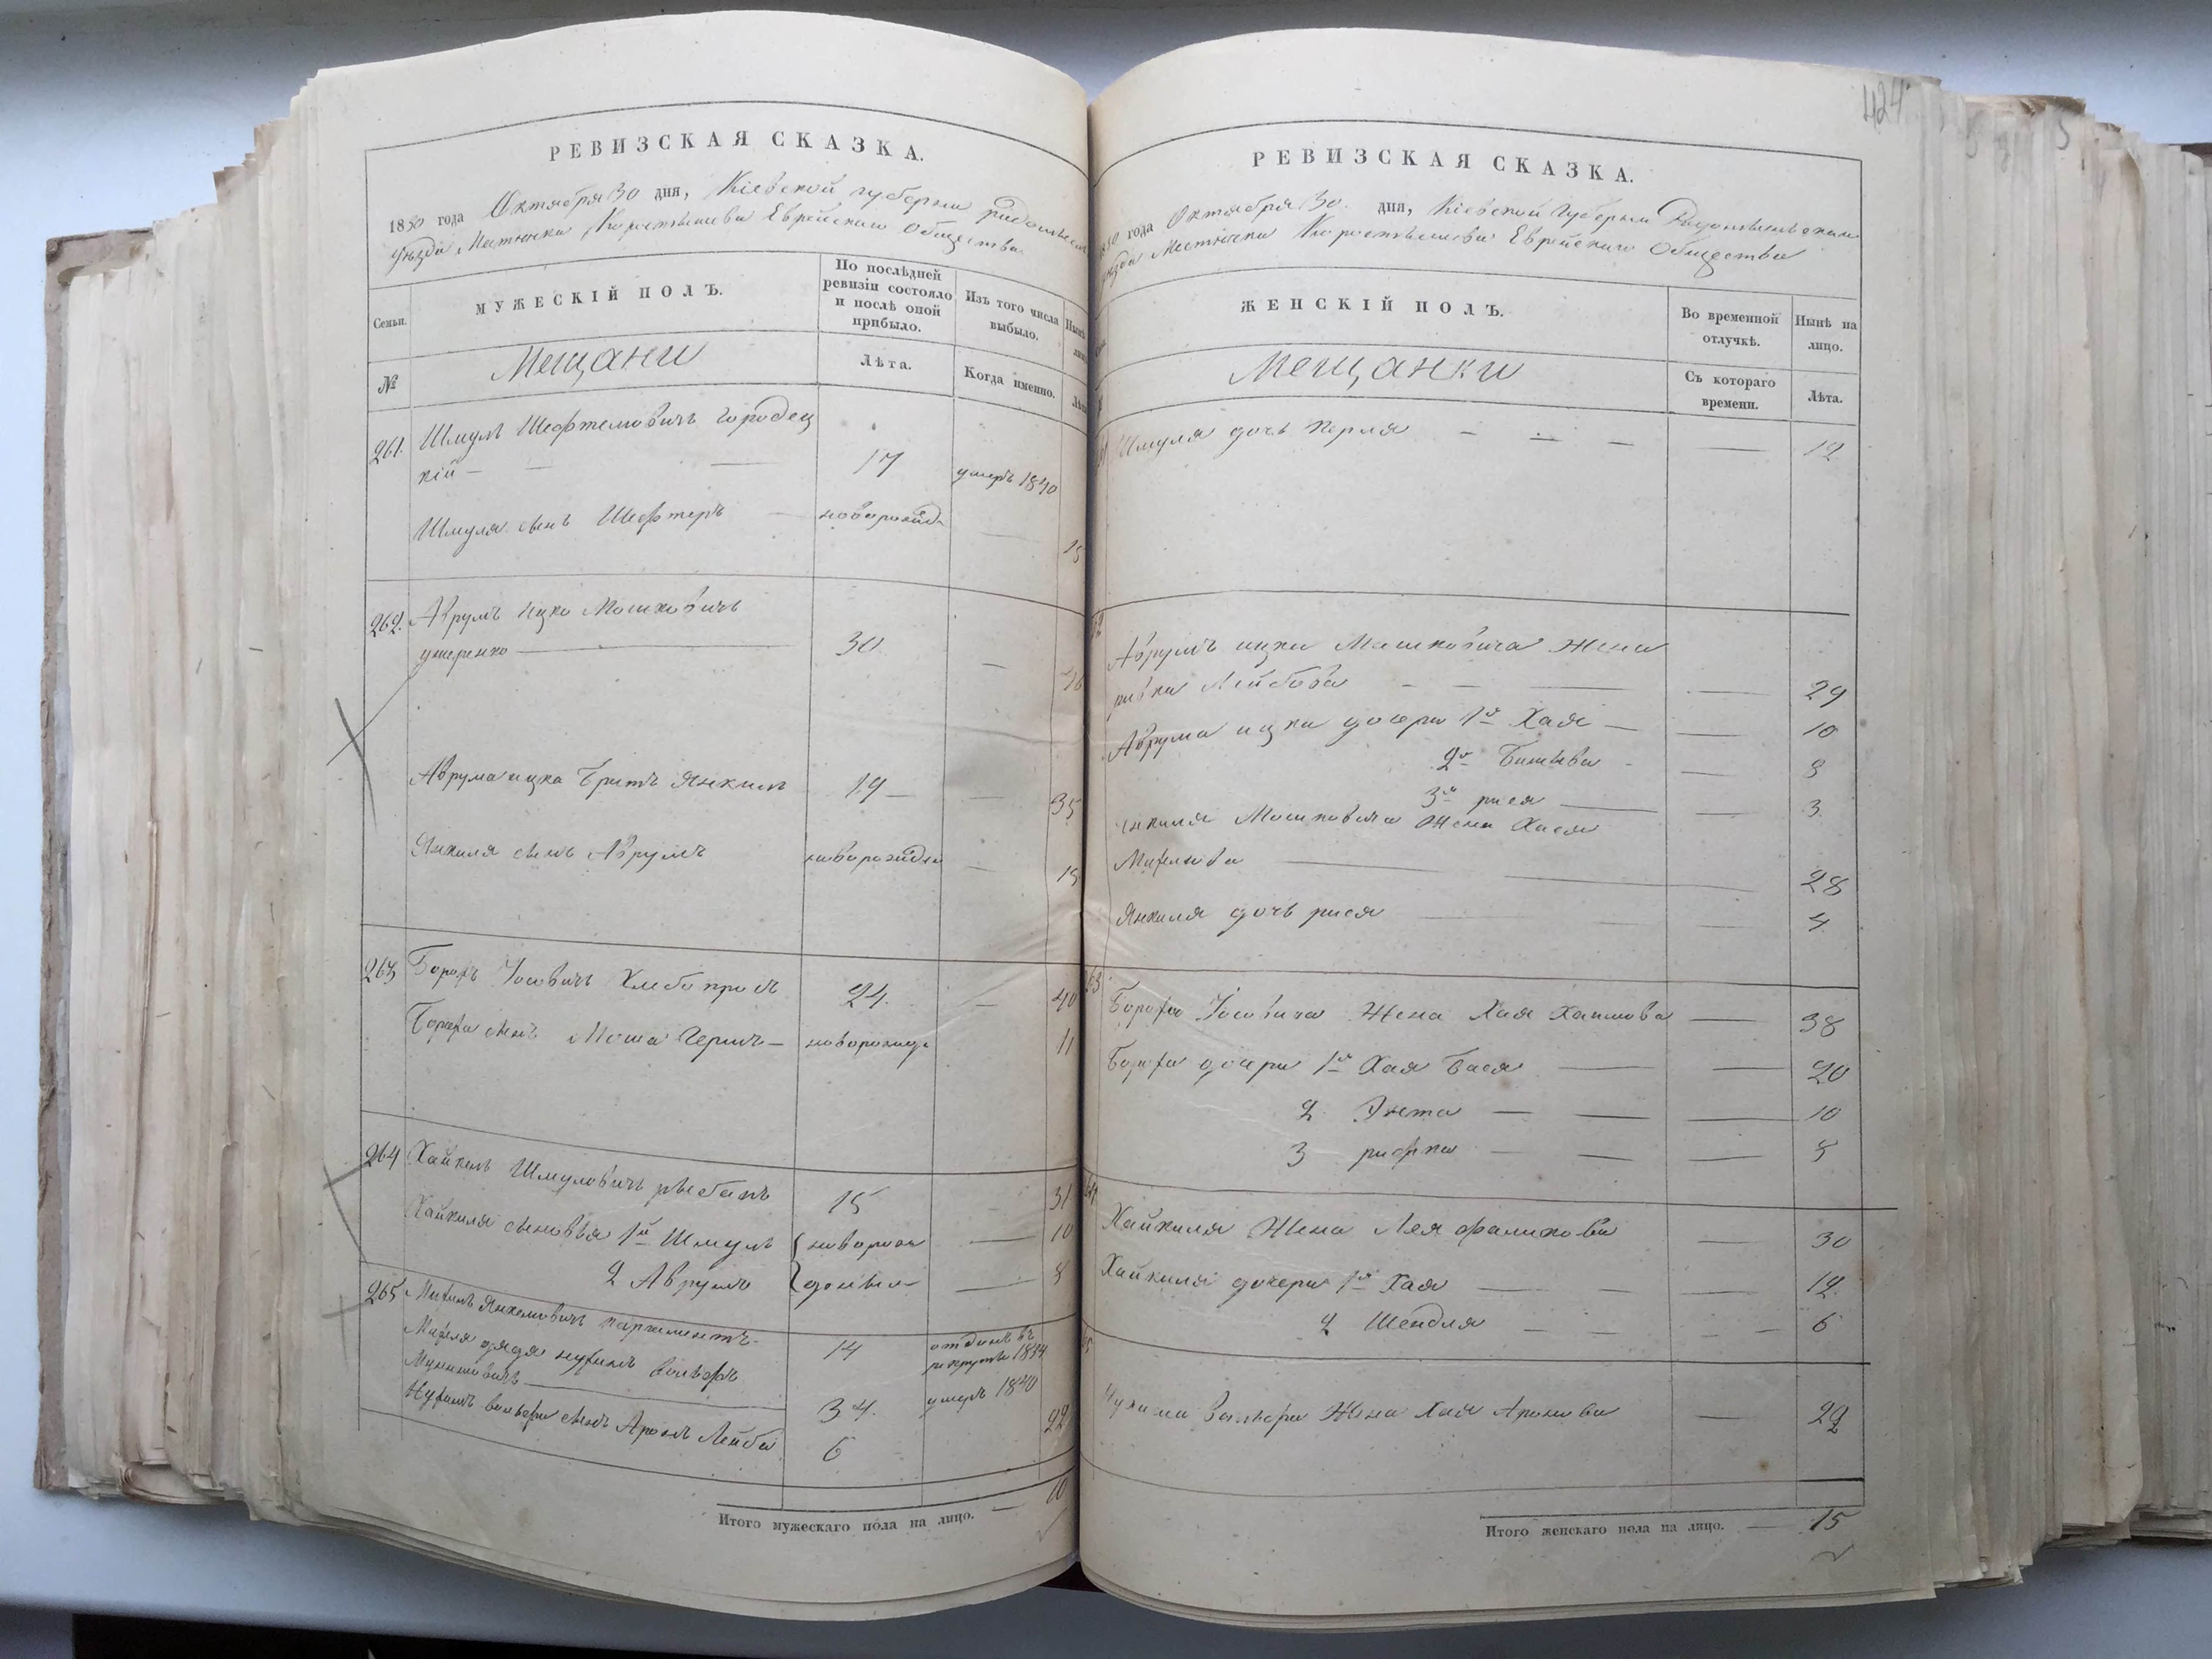 РЕВИЗСКАЯ СКАЗКА.
1850 года Октября 30 дня, Кіевской губерніи
уѣзда Мѣстечка Коростышева Еврейскаго общества
Семьи. МУЖЕСКІЙ ПОЛЪ. По послѣдней ревизіи состояло и послѣ оной прибыло. Изъ того числа выбыло.
№ Мещани Лѣта. Когда именно.
261. Шмуль Шефтелювичъ Городец
кій — — — 17 умеръ 1840
Шмуля сынъ Шефтель — новорожд 15
262. Аврумъ ицко Мошковичъ
30 —
Аврума ицка братъ Янкель 19 — — 35
Янкиля сынъ Аврумъ новорожден — 15
263 Борохъ Іосіовичъ 24. — 40
Бороха сынъ Мошко Герш — новорожд 11
264 Хайкель Шмуловичъ рыбакъ 15 — 31
Хайкиля сыновья 1й Шмуль { новорож — 10
2 Аврумъ { денни — 8
265 Михель Янкелювичъ 14 отданъ въ рекруты 1834
Михеля дядя нухимъ вольфъ
34. умеръ 1840
Нухимъ вольфа сынъ Аронъ Лейба 6 22
Итого мужескаго пола на лицо. — 10
424
РЕВИЗСКАЯ СКАЗКА.
1850 года Октября 30. дня, Кіевской губерніи Радомысльскаго
уѣзда Мѣстечка Коростышева Еврейскаго общества
ЖЕНСКІЙ ПОЛЪ. Во временной отлучкѣ. Нынѣ на лицо.
Мещанки Съ котораго времени. Лѣта.
Шмуля дочь Перля — — — — 12
Аврумъ ицки Мошковича жена
ривка Лейбова — — — — 29
Аврума ицки дочери 1я Хая — — 10
2я — — 8
3я рися — — 3
Янкиля Мошковича жена Хася
— — 28
Янкиля дочь рися — — 4
63 Бороха Іосіовича жена Хая Хаимова — 38
Бороха дочери 1я Хая Бася — — 20
2 Энета — — — 10
3 рифка — — — 8
Хайкиля жена Лея фаликова — 30
Хайкиля дочери 1я Хая — — — 12
2 Шендля — — — — 6
Нухима вольфа жена Хая Аронова — 29
Итого женскаго пола на лицо. — 15